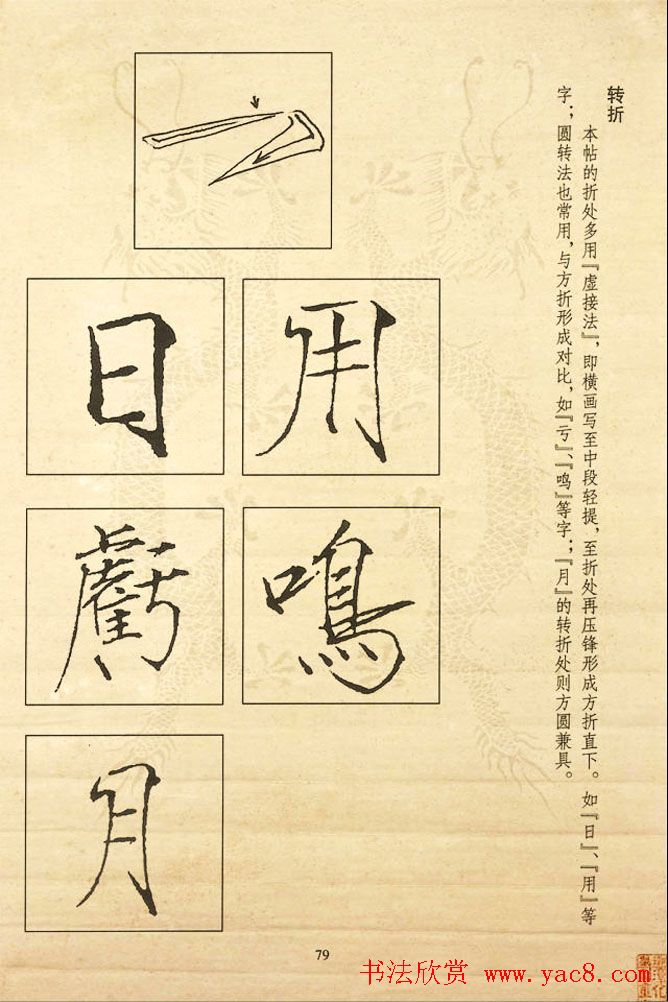 转折
本帖的折处多用『虚接法』，即横画写至中段轻提，至折处再压锋形成方折直下。如『日』、『用』等
字；圆转法也常用，与方折形成对比，如『亏』、『鸣』等字；『月』的转折处则方圆兼具。
用
日
鳴
虧
月
79
书法欣赏 www.yac8.com